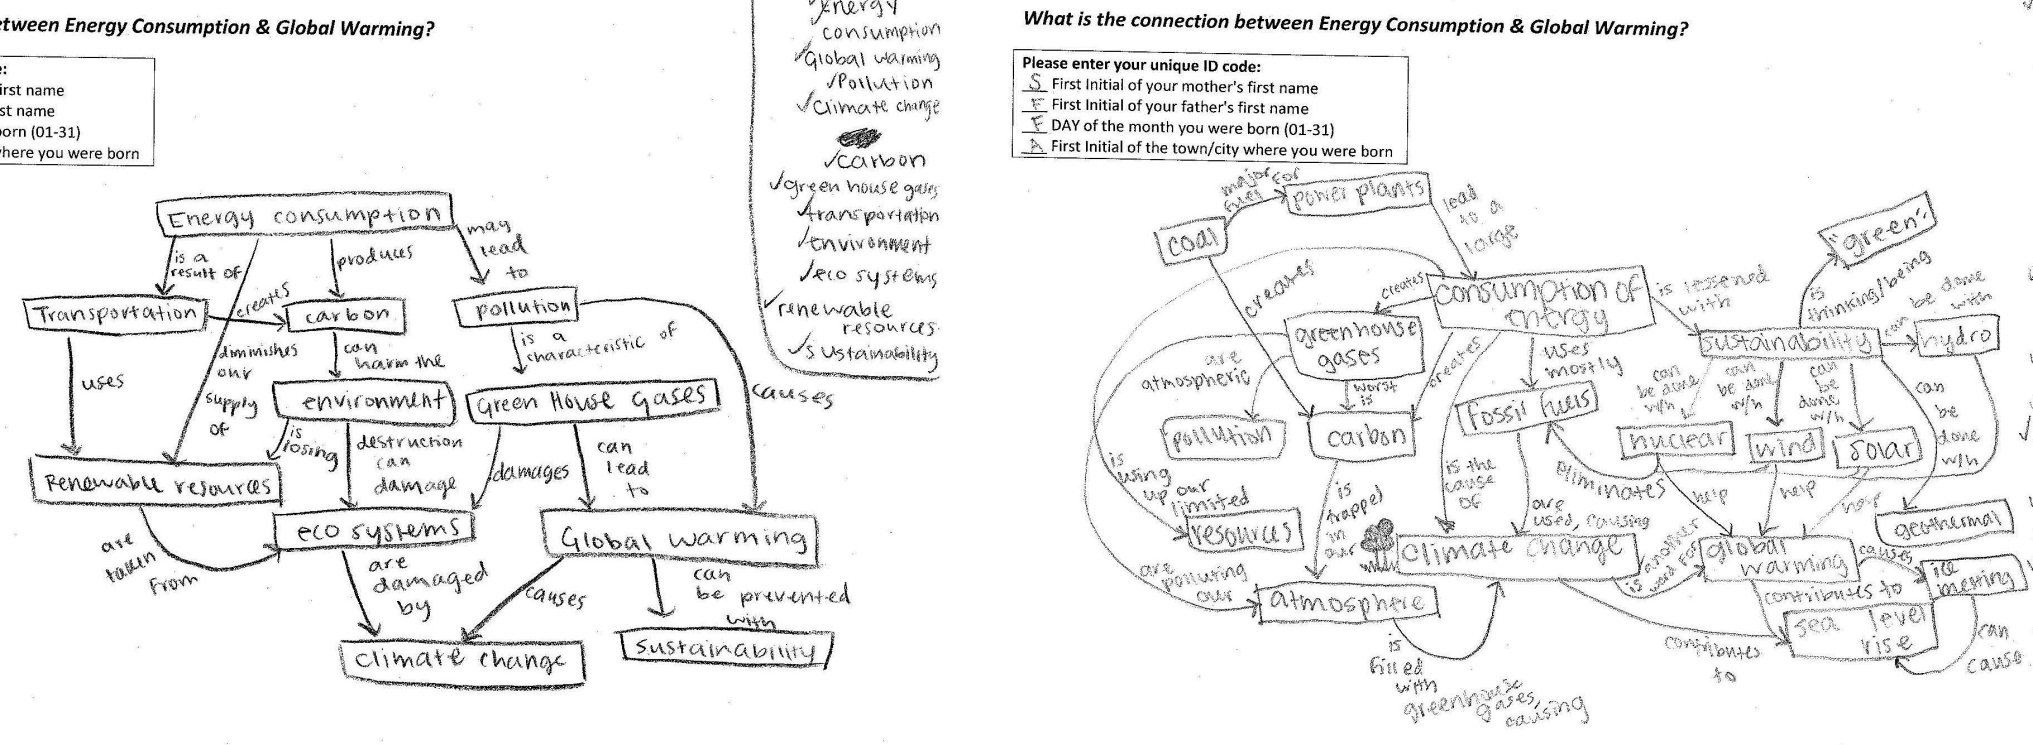 etween Energy Consumption & Global Warming?
e:
irst name
st name
orn (01-31)
here you were born
Energy
consumption
Global warming
Pollution
Climate change
carbon
green house gases
transportation
environment
eco systems
renewable
resources
sustainability
Energy consumption
is a
result of
produces
may
lead
to
Transportation
creates
carbon
pollution
uses
diminishes
our
supply
of
can
harm the
is a
characteristic of
causes
environment
Green House gases
is
losing
destruction
can
damage
damages
can
lead
to
Renewable resources
eco systems
Global warming
are
taken
from
are
damaged
by
causes
can
be prevented
with
climate change
sustainability
What is the connection between Energy Consumption & Global Warming?
Please enter your unique ID code:
S First Initial of your mother's first name
F First Initial of your father's first name
F DAY of the month you were born (01-31)
A First Initial of the town/city where you were born
major
fuel for
power plants
lead
to a
large
coal
"green"
creates
creates
consumption of
energy
is lessened
with
is
thinking/being
can
be done
with
greenhouse
gases
sustainability
hydro
are
atmospheric
worst
is
creates
uses
mostly
can
be done
w/h
can
be done
w/h
can
be
done
w/h
can
be
done
w/h
pollution
carbon
fossil fuels
nuclear
wind
solar
is
using
up our
limited
resources
is
trapped
in
our
is the
cause
of
are
used, causing
eliminates
help
help
help
geothermal
climate change
is another
word for
global
warming
causes
ice
melting
are
polluting
our
atmosphere
contributes to
sea level
rise
contributes
to
can
cause
is
filled
with
greenhouse
gases,
causing